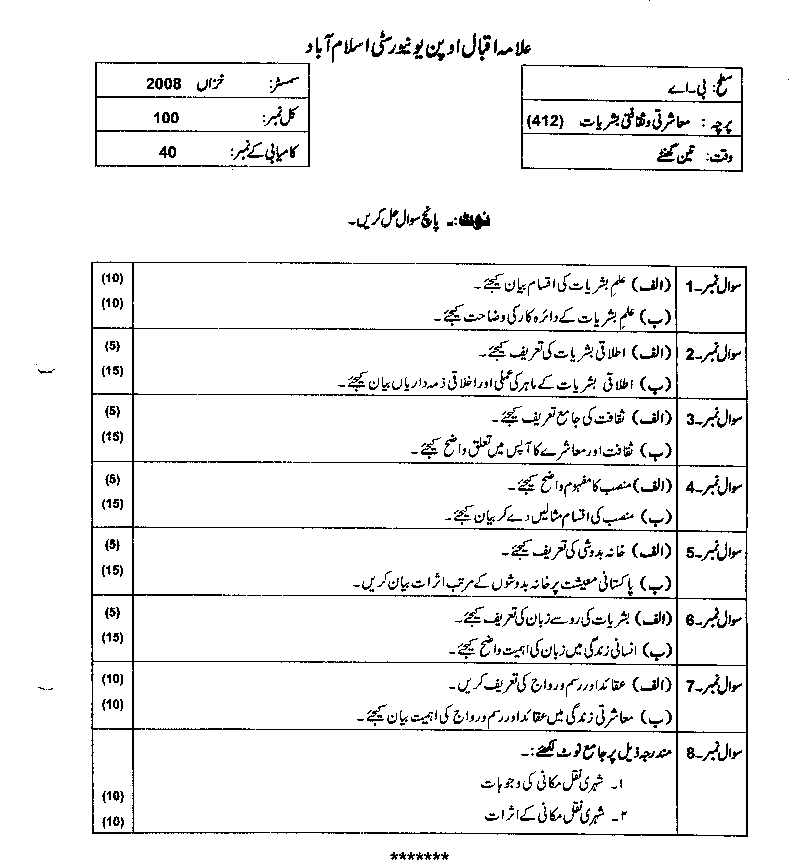 علامہ اقبال اوپن یونیورسٹی اسلام آباد
سطح: بی۔اے
سمسٹر: خزاں 2008
پرچہ: معاشرتی و ثقافتی بشریات (412)
کل نمبر: 100
وقت: تین گھنٹے
کامیابی کے نمبر: 40
نوٹ:۔ پانچ سوال حل کریں۔
سوال نمبر۔1 (الف) علم بشریات کی اقسام بیان کیجئے۔ (10)
(ب) علم بشریات کے دائرہ کار کی وضاحت کیجئے۔ (10)
سوال نمبر۔2 (الف) اطلاقی بشریات کی تعریف کیجئے۔ (5)
(ب) اطلاقی بشریات کے ماہر کی عملی اور اخلاقی ذمہ داریاں بیان کیجئے۔ (15)
سوال نمبر۔3 (الف) ثقافت کی جامع تعریف کیجئے۔ (5)
(ب) ثقافت اور معاشرے کا آپس میں تعلق واضح کیجئے۔ (15)
سوال نمبر۔4 (الف) منصب کا مفہوم واضح کیجئے۔ (5)
(ب) منصب کی اقسام مثالیں دے کر بیان کیجئے۔ (15)
سوال نمبر۔5 (الف) خانہ بدوشی کی تعریف کیجئے۔ (5)
(ب) پاکستانی معیشت پر خانہ بدوشوں کے مرتب اثرات بیان کریں۔ (15)
سوال نمبر۔6 (الف) بشریات کی رو سے زبان کی تعریف کیجئے۔ (5)
(ب) انسانی زندگی میں زبان کی اہمیت واضح کیجئے۔ (15)
سوال نمبر۔7 (الف) عقائد اور رسم و رواج کی تعریف کریں۔ (10)
(ب) معاشرتی زندگی میں عقائد اور رسم و رواج کی اہمیت بیان کیجئے۔ (10)
سوال نمبر۔8 مندرجہ ذیل پر جامع نوٹ لکھئے:۔
۱۔ شہری نقل مکانی کی وجوہات (10)
۲۔ شہری نقل مکانی کے اثرات (10)
*******